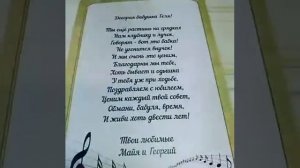 Дорогая бабушка Геля!
Ты ещё растишь на грядках
Нам клубнику и лучок,
Говорят - вот это бабка!
Не угонится внучок!
И мы очень это ценим,
Благодарны мы тебе,
Хоть бывает и одышка
У тебя уж при ходьбе.
Поздравляем с юбилеем,
Ценим каждый твой совет,
Обмани, бабуля, время,
И живи хоть двести лет!
Твои любимые
Майя и Георгий